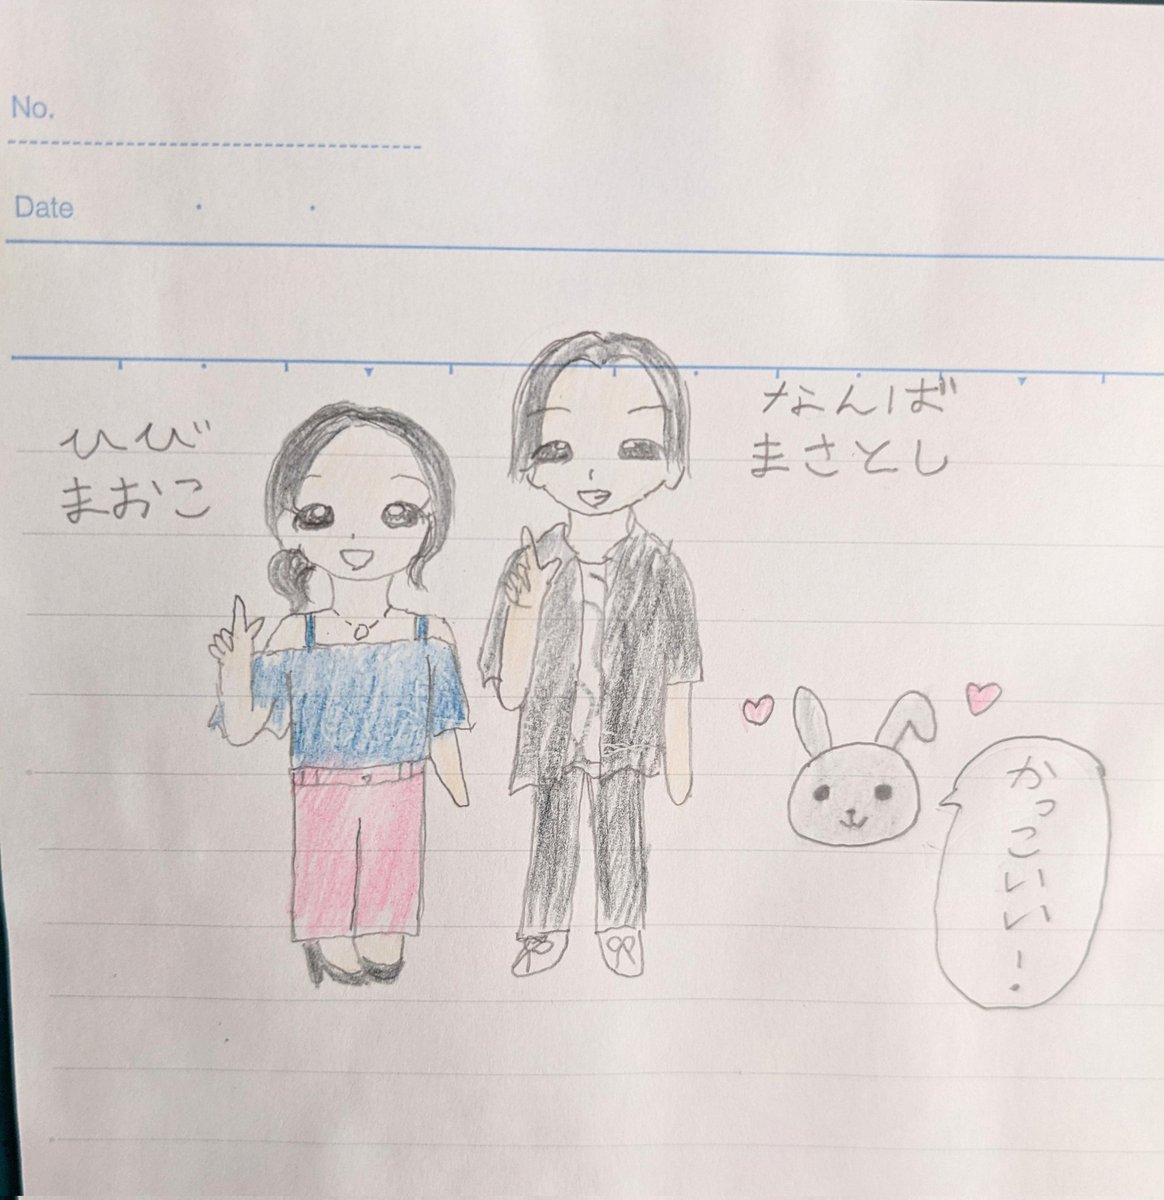 No.
Date
ひび
まおこ
なんば
まさとし
かっこいいー!